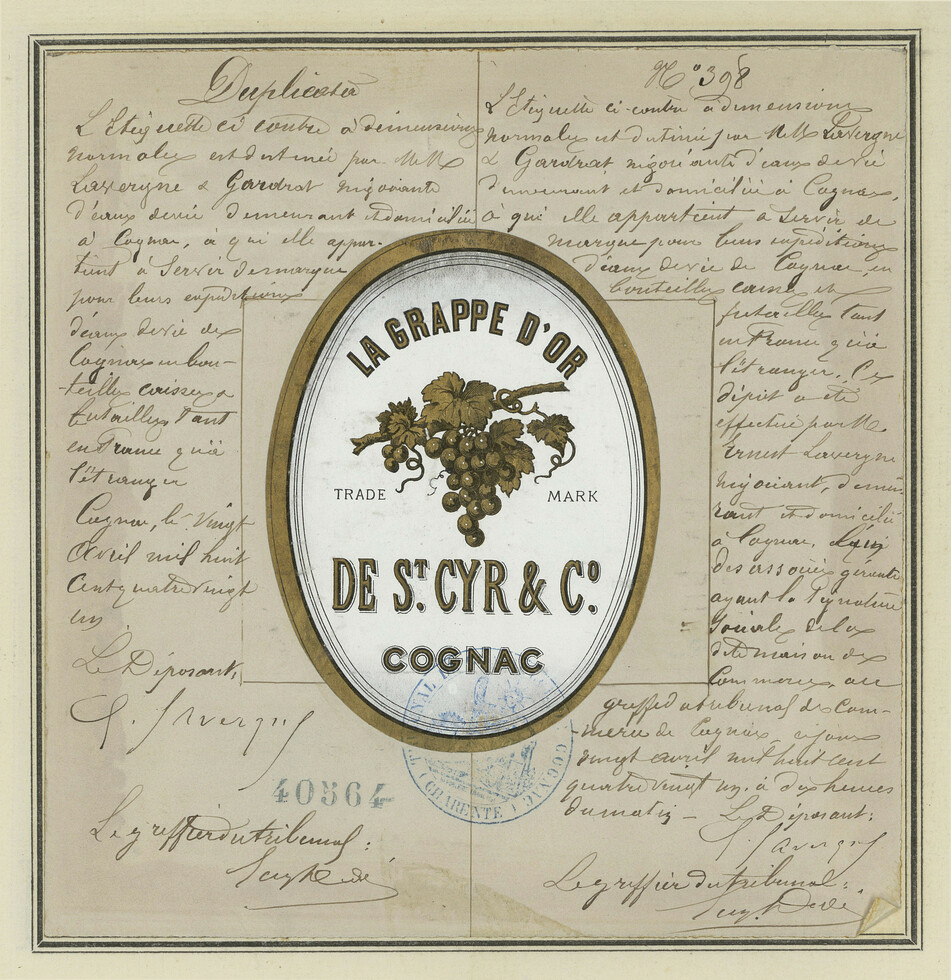 Duplicata
L'Etiquette ci contre à dimensions
normales est destinée par MM
Lavergne & Gardrat négociants
d'eaux devie demeurant et domiciliés
à Cognac, à qui elle appar-
tient à Servir de marque
pour leurs expéditions
d'eaux devie de
Cognac en bou-
teilles caisses &
futailles Tant
en France qu'à
l'étranger
Cognac, le vingt
Avril mil huit
Cent quatre vingt
un
Le Déposant,
E. Lavergne
Le greffier du tribunal:
N° 398
L'Etiquette ci-contre à dimensions
normales est destinée par MM Lavergne
& Gardrat négociants d'eaux devie
demeurant et domiciliés à Cognac,
à qui elle appartient à Servir de
marque pour leurs expéditions
d'eaux devie de Cognac, en
bouteilles caisses et
futailles tant
en France qu'à
l'étranger. Ce
dépôt a été
effectué par M.
Ernest Lavergne
négociant, demeu-
rant et domicilié
à Cognac, l'un
des associés gérants
ayant la Signature
Sociale de la
dite maison de
Commerce, au
greffe du tribunal de Com-
merce de Cognac, cejour
vingt avril mil huit cent
quatre vingt un, à dix heures
du matin – Le Déposant:
E. Lavergne
Le greffier du tribunal:
LA GRAPPE D'OR
TRADE MARK
DE ST. CYR & Co.
COGNAC
COGNAC
(CHARENTE)
40564